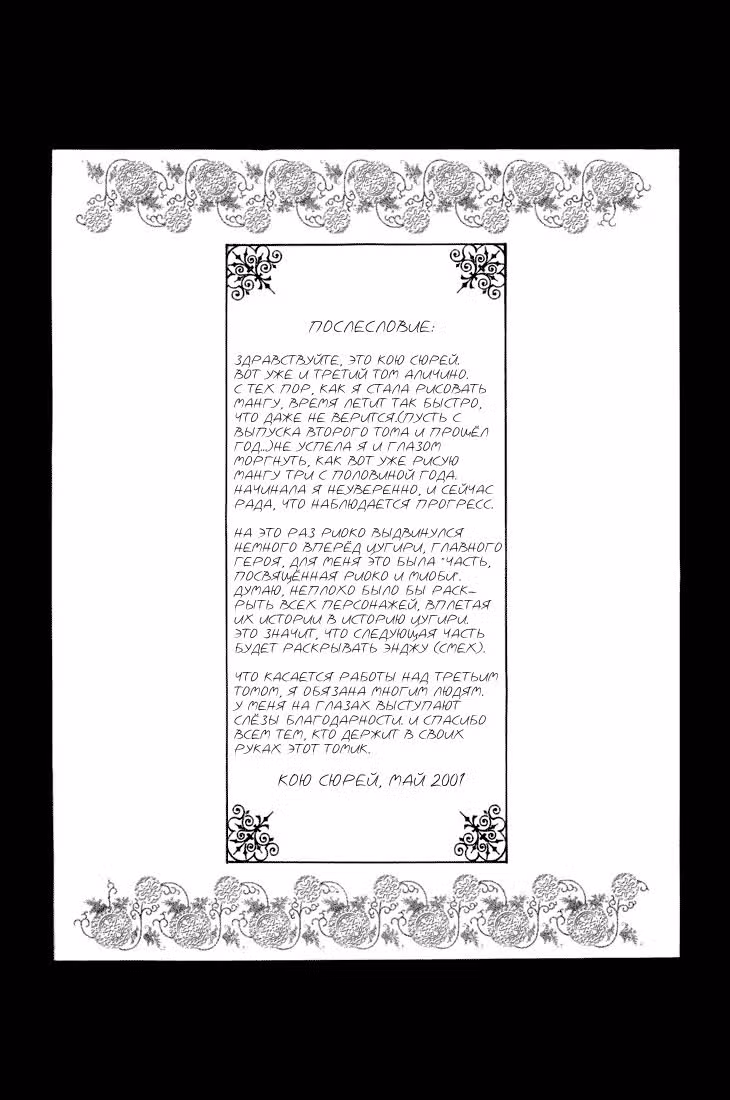 ПОСЛЕСЛОВИЕ:
ЗДРАВСТВУЙТЕ, ЭТО КОЮ СЮРЕЙ.
ВОТ УЖЕ И ТРЕТИЙ ТОМ АЛИЧИНО.
С ТЕХ ПОР, КАК Я СТАЛА РИСОВАТЬ
МАНГУ, ВРЕМЯ ЛЕТИТ ТАК БЫСТРО,
ЧТО ДАЖЕ НЕ ВЕРИТСЯ.(ПУСТЬ С
ВЫПУСКА ВТОРОГО ТОМА И ПРОШЁЛ
ГОД...)НЕ УСПЕЛА Я И ГЛАЗОМ
МОРГНУТЬ, КАК ВОТ УЖЕ РИСУЮ
МАНГУ ТРИ С ПОЛОВИНОЙ ГОДА.
НАЧИНАЛА Я НЕУВЕРЕННО, И СЕЙЧАС
РАДА, ЧТО НАБЛЮДАЕТСЯ ПРОГРЕСС.
НА ЭТО РАЗ РИОКО ВЫДВИНУЛСЯ
НЕМНОГО ВПЕРЁД ЦУГИРИ, ГЛАВНОГО
ГЕРОЯ, ДЛЯ МЕНЯ ЭТО БЫЛА "ЧАСТЬ,
ПОСВЯЩЁННАЯ РИОКО И МИОБИ".
ДУМАЮ, НЕПЛОХО БЫЛО БЫ РАСК-
РЫТЬ ВСЕХ ПЕРСОНАЖЕЙ, ВПЛЕТАЯ
ИХ ИСТОРИИ В ИСТОРИЮ ЦУГИРИ.
ЭТО ЗНАЧИТ, ЧТО СЛЕДУЮЩАЯ ЧАСТЬ
БУДЕТ РАСКРЫВАТЬ ЭНДЖУ (СМЕХ).
ЧТО КАСАЕТСЯ РАБОТЫ НАД ТРЕТЬИМ
ТОМОМ, Я ОБЯЗАНА МНОГИМ ЛЮДЯМ.
У МЕНЯ НА ГЛАЗАХ ВЫСТУПАЮТ
СЛЁЗЫ БЛАГОДАРНОСТИ. И СПАСИБО
ВСЕМ ТЕМ, КТО ДЕРЖИТ В СВОИХ
РУКАХ ЭТОТ ТОМИК.
КОЮ СЮРЕЙ, МАЙ 2001